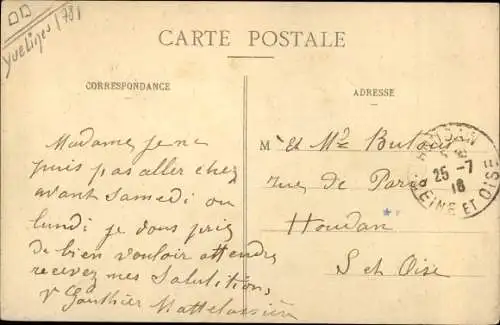 Yvelines (78)
CARTE POSTALE
CORRESPONDANCE
ADRESSE
Madame je ne
puis pas aller chez
avant samedi ou
lundi je vous prie
de bien vouloir attendre
recevez mes salutitions
Vve Gauthier
M et Mme
rue de Paris
Houdan
S et Oise
HOUDAN
25 -7
16
SEINE ET OISE